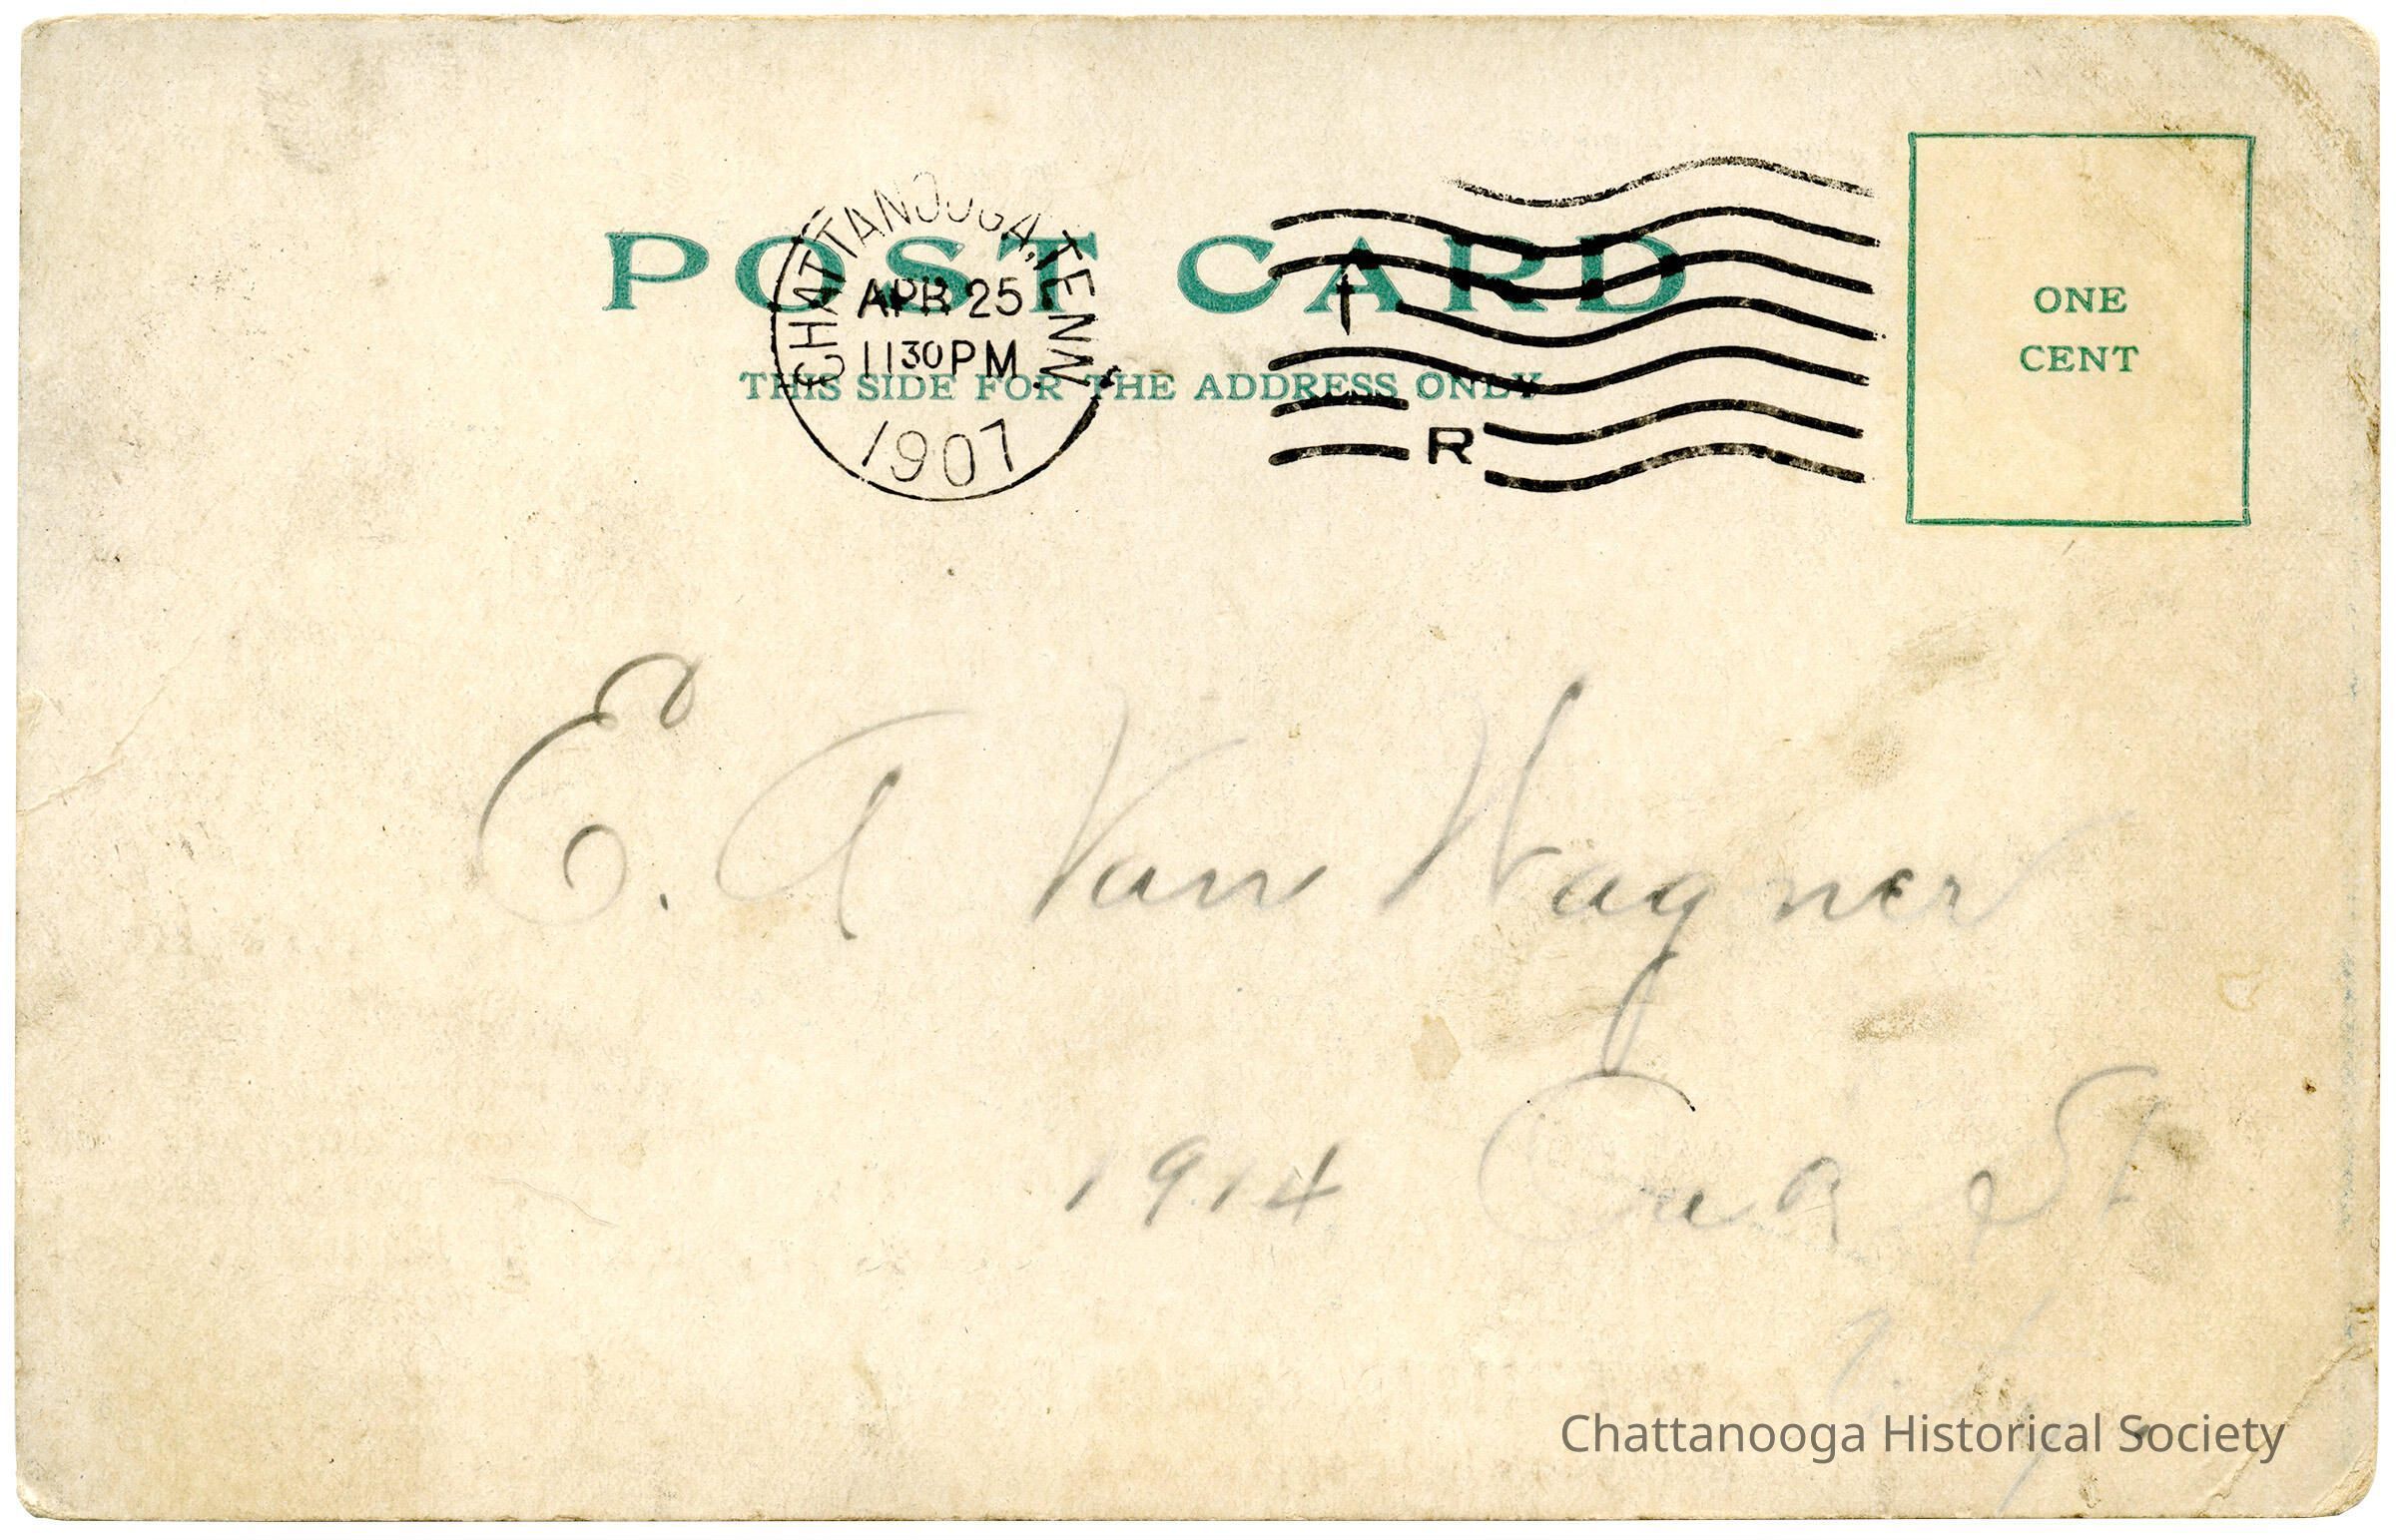 POST CARD
THIS SIDE FOR THE ADDRESS ONLY
CHATTANOOGA, TENN.
APR 25
1130 PM
1907
R
ONE
CENT
E. A Van Wagner
1914 St
Chattanooga Historical Society